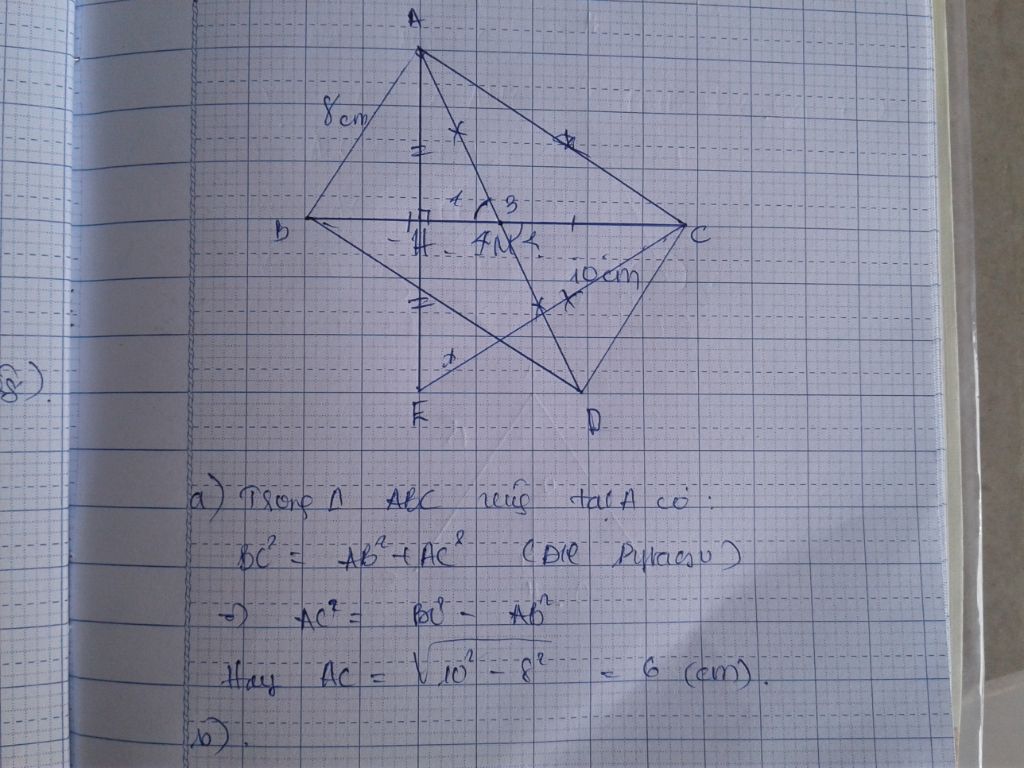 A
8cm
1 3
B H 4 M 2 C
10cm
E D
8).
a) Trong Δ ABC vuông tại A có:
BC² = AB² + AC² (Đ/l Pytago)
=) AC² = BC² - AB²
Hay AC = √10² - 8² = 6 (cm).
b).